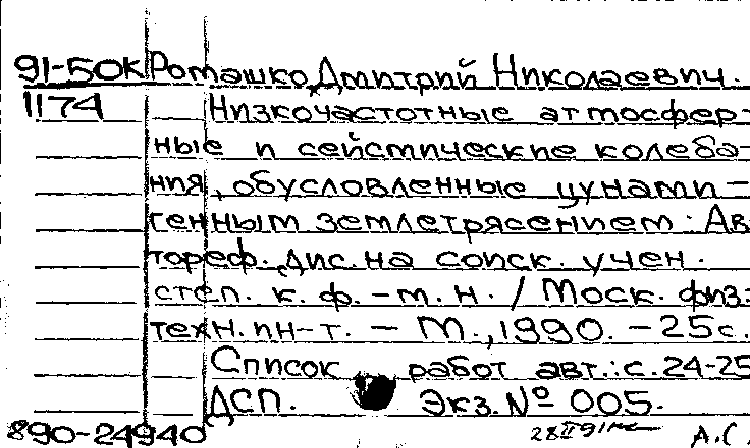 91-50К Ромашко, Дмитрий Николаевич.
1174 Низкочастотные атмосфер-
ные и сейсмические колеба-
ния, обусловленные цунами-
генным землетрясением: Ав-
тореф. дис. на соиск. учен.
степ. к. ф.-м. н. / Моск. физ.-
техн. ин-т. - М., 1990. - 25с.
Список работ авт.: с. 24-25
ДСП. Экз. № 005.
890-24940 А.С.